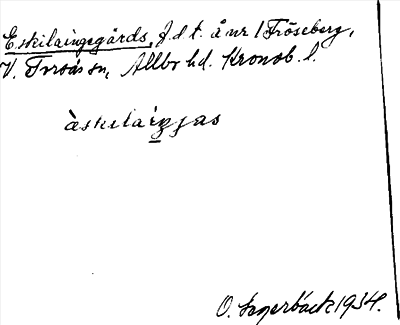 Eskilaingegårds, f d t. å nr 1 Fröseberg,
V. Torsås sn, Allbo hd. Kronob. l.
àskilaiŋjas
O. Lagerbäck 1934.